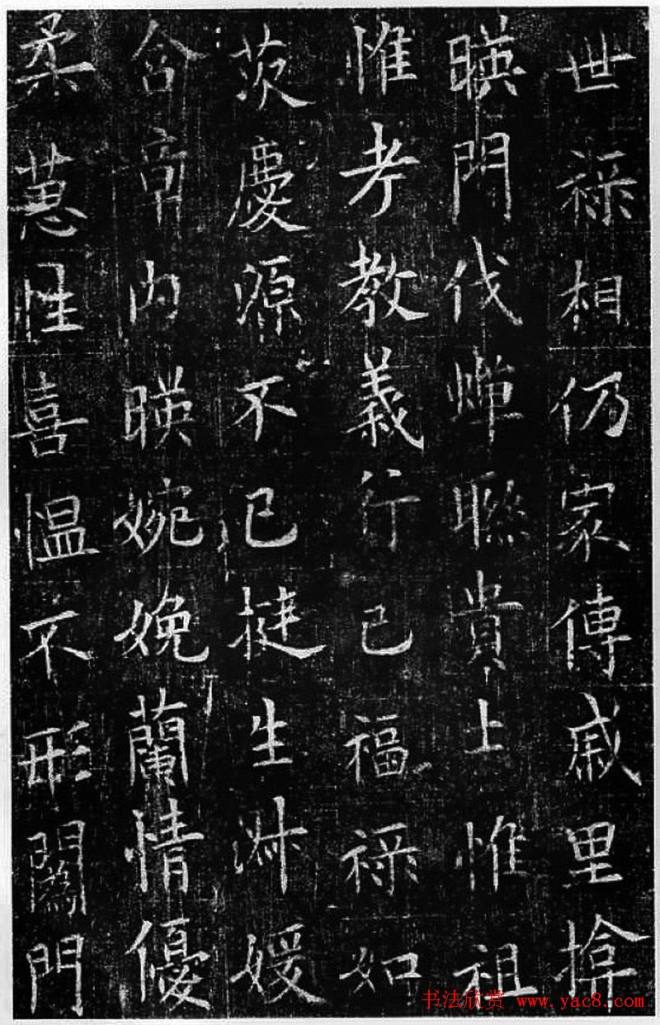 世祿相仍家傳戚里揜
暎門伐蟬聯貴上惟祖
惟考教義行己福祿如
茨慶源不已挺生淑媛
含章内暎婉娩蘭情優
柔蕙性喜愠不形闔門
书法欣赏 www.yac8.com